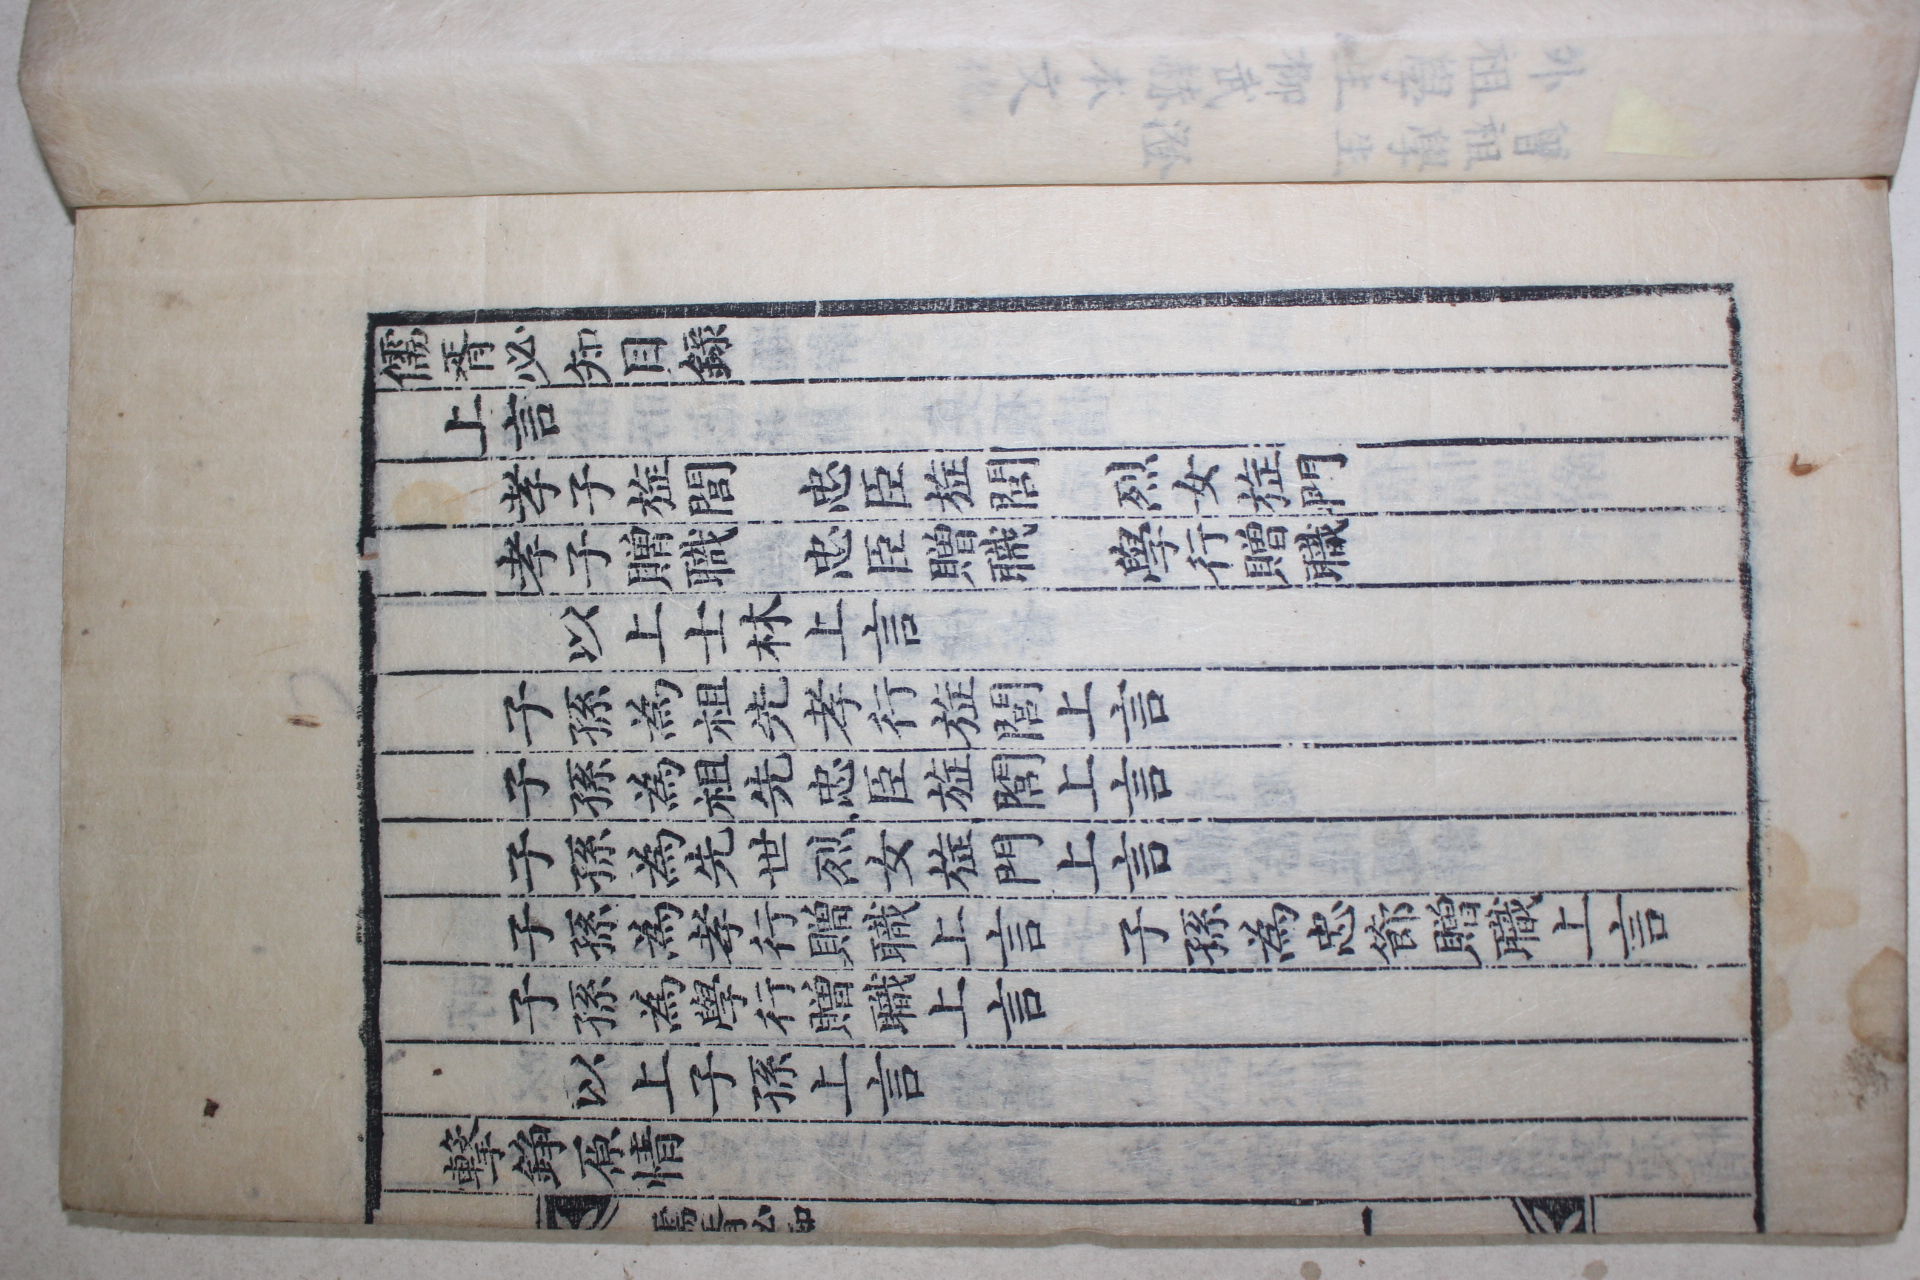 儒胥必知目錄
上言
孝子旌閭 忠臣旌閭 烈女旌門
孝子贈職 忠臣贈職 學行贈職
以上士林上言
子孫為祖先孝行旌閭上言
子孫為祖先忠臣旌閭上言
子孫為先世烈女旌門上言
子孫為孝行贈職上言 子孫為忠節贈職上言
子孫為學行贈職上言
以上子孫上言
擊錚原情
儒胥必知 一